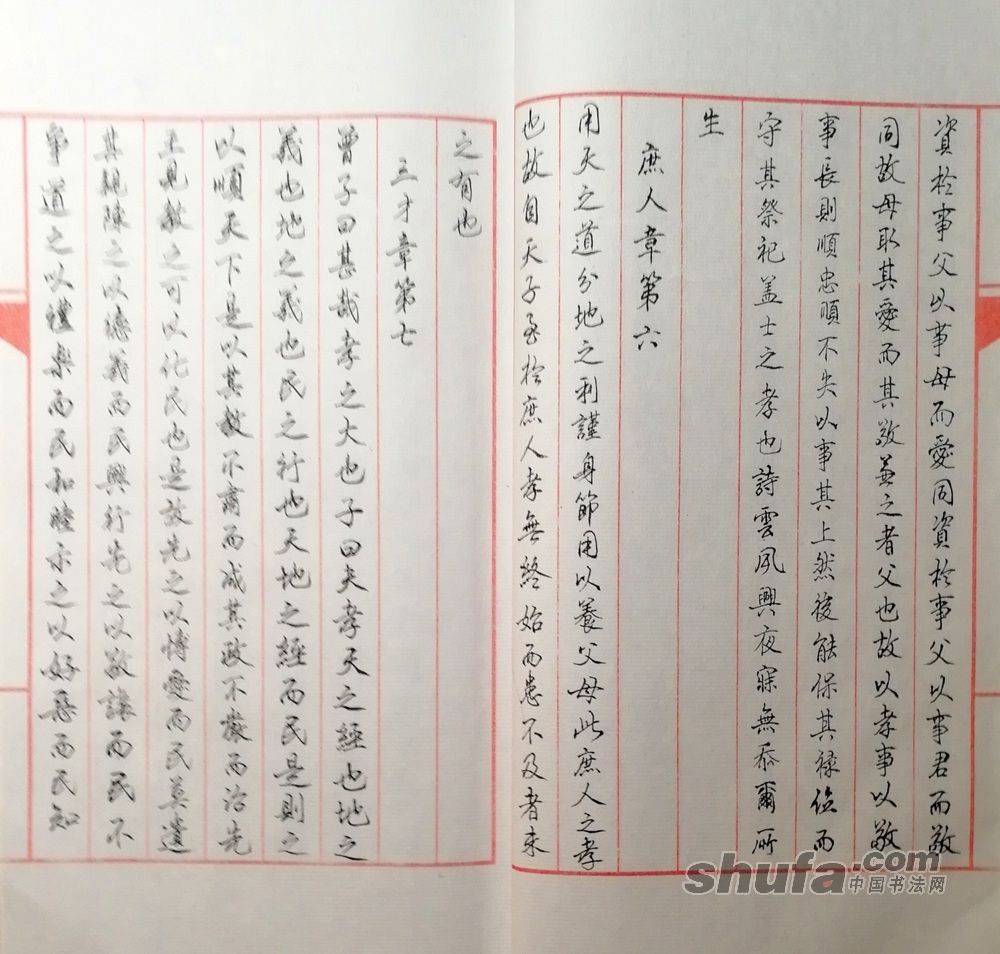 資於事父以事母而愛同資於事父以事君而敬
同故母取其愛而其敬兼之者父也故以孝事以敬
事長則順忠順不失以事其上然後能保其祿位而
守其祭祀盖士之孝也詩雲夙興夜寐無忝爾所
生
庶人章第六
用天之道分地之利謹身節用以養父母此庶人之孝
也故自天子至於庶人孝無終始而患不及者未
之有也
三才章第七
曾子曰甚哉孝之大也子曰夫孝天之經也地之
義也地之義也民之行也天地之經而民是則之
以順天下是以其教不肅而成其政不嚴而治先
王見教之可以化民也是故先之以博愛而民莫遺
其親陳之以德義而民興行先之以敬讓而民不
爭道之以禮樂而民和睦示之以好惡而民知
shufa.com
中国书法网